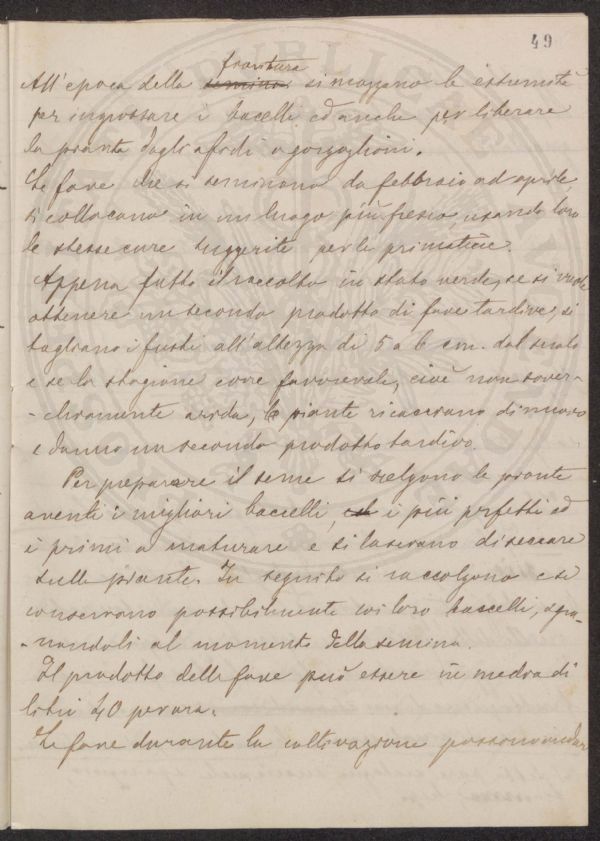 49
fioritura
All'epoca della semina si mozzano le estremità
per ingrossare i bacelli ed anche per liberare
la pianta dagli afidi o gorgoglioni.
Le fave che si seminano da febbraio ad aprile,
si collocano in un luogo più fresco, usando loro
le stesse cure suggerite per le primaticcie.
Appena fatto il raccolto in stato verde, se si vuole
ottenere un secondo prodotto di fave tardive, si
tagliano i fusti all'altezza di 5 a 6 cm. dal suolo
e se la stagione corre favorevole, cioè non sover-
-chiamente arida, le piante ricacciano di nuovo
e danno un secondo prodotto tardivo.
Per preparare il seme si scelgono le piante
aventi i migliori baccelli, i più perfetti ed
i primi a maturare e si lasciano diseccare
sulle piante. In seguito si raccolgono e si
conservano possibilmente coi loro baccelli, sgra-
-nandoli al momento della semina.
Il prodotto delle fave può essere in media di
litri 40 per ara.
Le fave durante la coltivazione possono